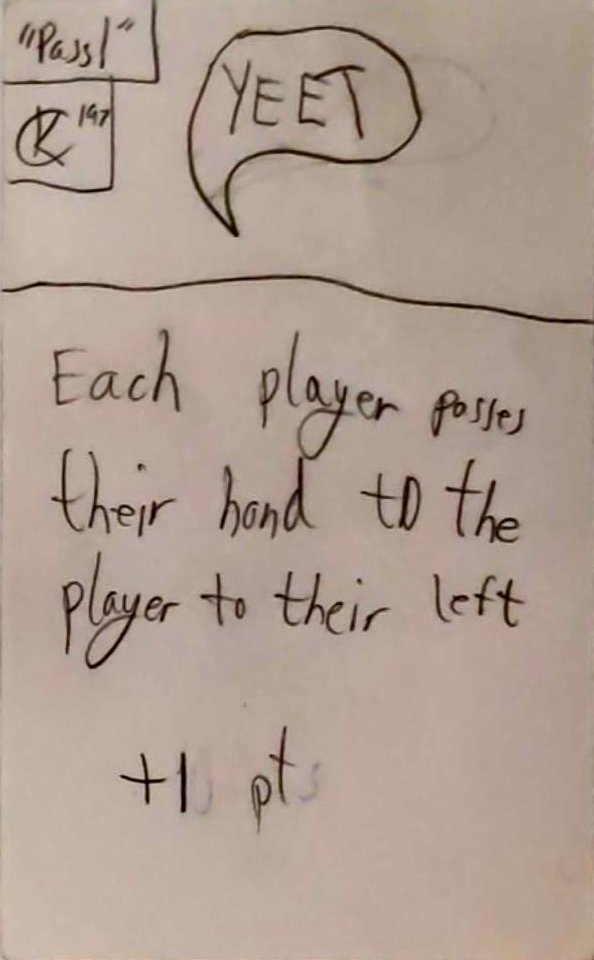 "Pass!"
YEET
Each player passes
their hand to the
player to their left
+1 pt